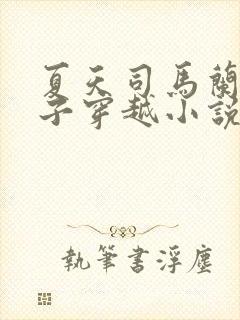 夏天司馬蘭
子穿越小説
執筆書浮塵